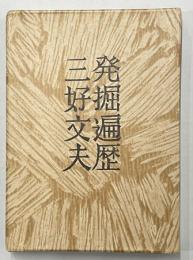 発掘遍歴
三好文夫